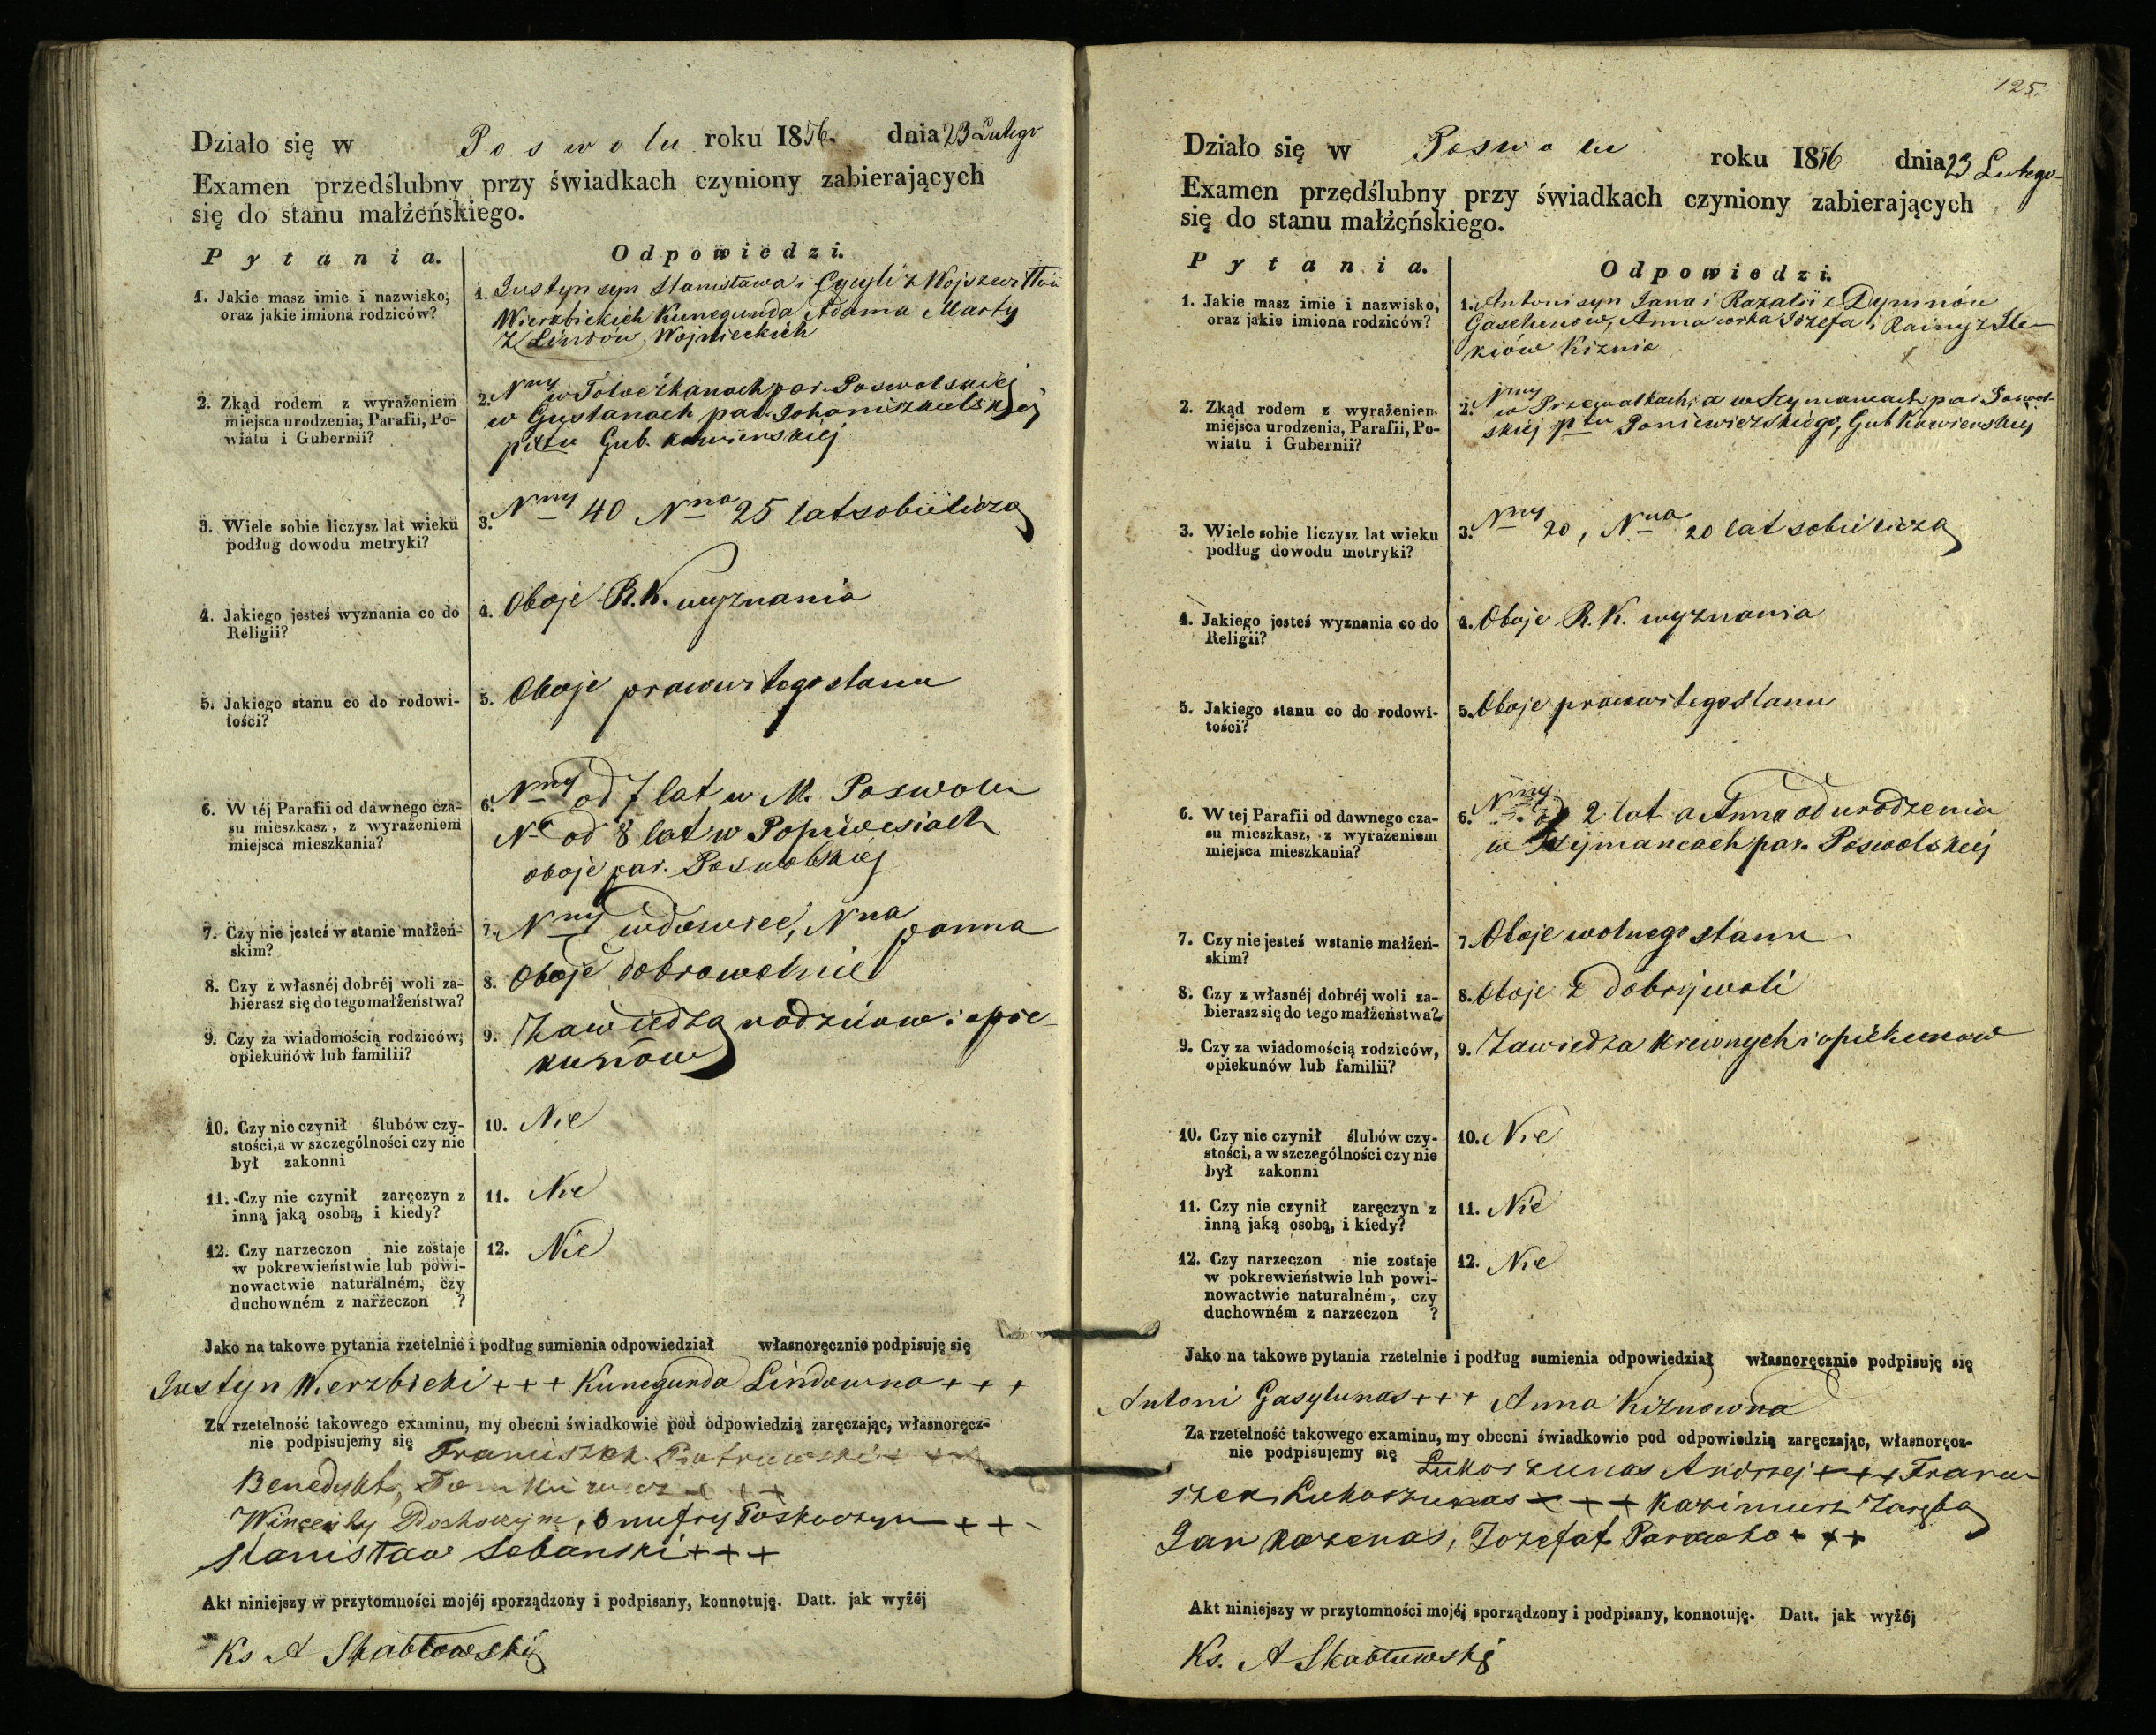 Działo się w Poswolu roku 1856. dnia 23 Lutego
Examen przedślubny przy świadkach czyniony zabierających
się do stanu małżeńskiego.
Pytania.
Odpowiedzi.
1. Jakie masz imie i nazwisko,
oraz jakie imiona rodziców?
1. Justyn syn Stanisława i Cycylii z
Wierzbickich Kunegunda Adama Marty
z Lindów Wojnieckich
2. Zkąd rodem z wyrażeniem
miejsca urodzenia, Parafii, Po-
wiatu i Gubernii?
2. Nny w par. Poswolskiej
w Gustanach par. Johaniszkielskiej
pttu Gub. Kowienskiej
3. Wiele sobie liczysz lat wieku
podług dowodu metryki?
3. Nny 40 Nna 25 lat sobie liczą
4. Jakiego jesteś wyznania co do
Religii?
4. Oboje R. K. wyznania
5. Jakiego stanu co do rodowi-
tości?
5. Oboje prawowitego stanu
6. W téj Parafii od dawnego cza-
su mieszkasz, z wyrażeniem
miejsca mieszkania?
6. Nny od 7 lat w M. Poswolu
Na od 8 lat w Popiwesiach
oboje par. Poswolskiej
7. Czy nie jesteś w stanie małżeń-
skim?
7. Nny wdowiec, Nna panna
8. Czy z własnéj dobréj woli za-
bierasz się do tego małżeństwa?
8. Oboje dobrowolnie
9. Czy za wiadomością rodziców,
opiekunów lub familii?
9. Zawiedzą rodziców i opie-
kunów
10. Czy nie czynił ślubów czy-
stości, a w szczególności czy nie
był zakonni
10. Nie
11. Czy nie czynił zaręczyn z
inną jaką osobą, i kiedy?
11. Nie
12. Czy narzeczon nie zostaje
w pokrewieństwie lub powi-
nowactwie naturalném, czy
duchowném z narzeczon ?
12. Nie
Jako na takowe pytania rzetelnie i podług sumienia odpowiedział własnoręcznie podpisuję się
Justyn Wierzbicki +++ Kunegunda Lindowna +++
Za rzetelność takowego examinu, my obecni świadkowie pod odpowiedzią zaręczając, własnoręcz-
nie podpisujemy się Franciszek Piotrowski +++
Benedykt, +++
Wincenty Doshoczym, Onufry Poskoczym ++-
Stanisław Lebanski +++
Akt niniejszy w przytomności mojéj sporządzony i podpisany, konnotuję. Datt. jak wyżéj
Ks A Skabłowski
125.
Działo się w Poswolu roku 1856 dnia 23 Lutego
Examen przedślubny przy świadkach czyniony zabierających
się do stanu małżeńskiego.
Pytania.
Odpowiedzi.
1. Jakie masz imie i nazwisko,
oraz jakie imiona rodziców?
1. Antoni syn Jana i Razalii z Dymnów
Gaselunów, Anna corka Jozefa i Rainy z Ile-
kiów Kiznia
2. Zkąd rodem z wyrażeniem
miejsca urodzenia, Parafii, Po-
wiatu i Gubernii?
2. Nny w Przewałkach, a w Szymancach par Poswol-
skiej pttu Poniewiezskiego, Gub Kowienskiej
3. Wiele sobie liczysz lat wieku
podług dowodu metryki?
3. Nny 20, Nna 20 lat sobie liczą
4. Jakiego jesteś wyznania co do
Religii?
4. Oboje R. K. wyznania
5. Jakiego stanu co do rodowi-
tości?
5. Oboje prawowitego stanu
6. W tej Parafii od dawnego cza-
su mieszkasz, z wyrażeniem
miejsca mieszkania?
6. Nny od 2 lat a Anna od urodzenia
w Szymancach par. Poswolskiej
7. Czy nie jesteś w stanie małżeń-
skim?
7. Oboje wolnego stanu
8. Czy z własnéj dobréj woli za-
bierasz się do tego małżeństwa?
8. Oboje z dobrej woli
9. Czy za wiadomością rodziców,
opiekunów lub familii?
9. Zawiedzą krewnych i opiekunow
10. Czy nie czynił ślubów czy-
stości, a w szczególności czy nie
był zakonni
10. Nie
11. Czy nie czynił zaręczyn z
inną jaką osobą, i kiedy?
11. Nie
12. Czy narzeczon nie zostaje
w pokrewieństwie lub powi-
nowactwie naturalném, czy
duchowném z narzeczon ?
12. Nie
Jako na takowe pytania rzetelnie i podług sumienia odpowiedział własnoręcznie podpisuję się
Antoni Gasylunas +++ Anna Kiznowna
Za rzetelność takowego examinu, my obecni świadkowie pod odpowiedzią zaręczając, własnoręcz-
nie podpisujemy się Lukoszunas Andrzej +++ Franci-
szek Lukoszunas +++ Kazimierz Zaręba
Jan Kazenas, Jozefat +++
Akt niniejszy w przytomności mojéj sporządzony i podpisany, konnotuję. Datt. jak wyżéj
Ks. A Skabłowski